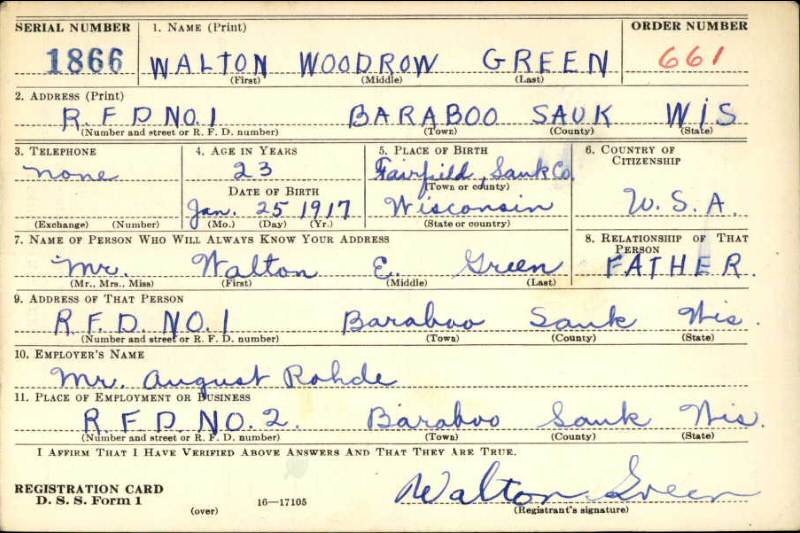 SERIAL NUMBER 1. NAME (Print) ORDER NUMBER
1866 WALTON WOODROW GREEN 661
(First) (Middle) (Last)
2. ADDRESS (Print)
R.F.D NO.1 BARABOO SAUK WIS
(Number and street or R. F. D. number) (Town) (County) (State)
3. TELEPHONE 4. AGE IN YEARS 5. PLACE OF BIRTH 6. COUNTRY OF CITIZENSHIP
none 23 Fairfield, Sauk Co.
DATE OF BIRTH (Town or county)
Jan. 25 1917 Wisconsin U.S.A.
(Exchange) (Number) (Mo.) (Day) (Yr.) (State or country)
7. NAME OF PERSON WHO WILL ALWAYS KNOW YOUR ADDRESS 8. RELATIONSHIP OF THAT PERSON
Mr. Walton E. Green FATHER.
(Mr., Mrs., Miss) (First) (Middle) (Last)
9. ADDRESS OF THAT PERSON
R.F.D. NO.1 Baraboo Sauk Wis.
(Number and street or R. F. D. number) (Town) (County) (State)
10. EMPLOYER'S NAME
Mr. August Rohde
11. PLACE OF EMPLOYMENT OR BUSINESS
R.F.D NO.2. Baraboo Sauk Wis.
(Number and street or R. F. D. number) (Town) (County) (State)
I AFFIRM THAT I HAVE VERIFIED ABOVE ANSWERS AND THAT THEY ARE TRUE.
REGISTRATION CARD
D. S. S. Form 1 16—17105 Walton Green
(over) (Registrant's signature)